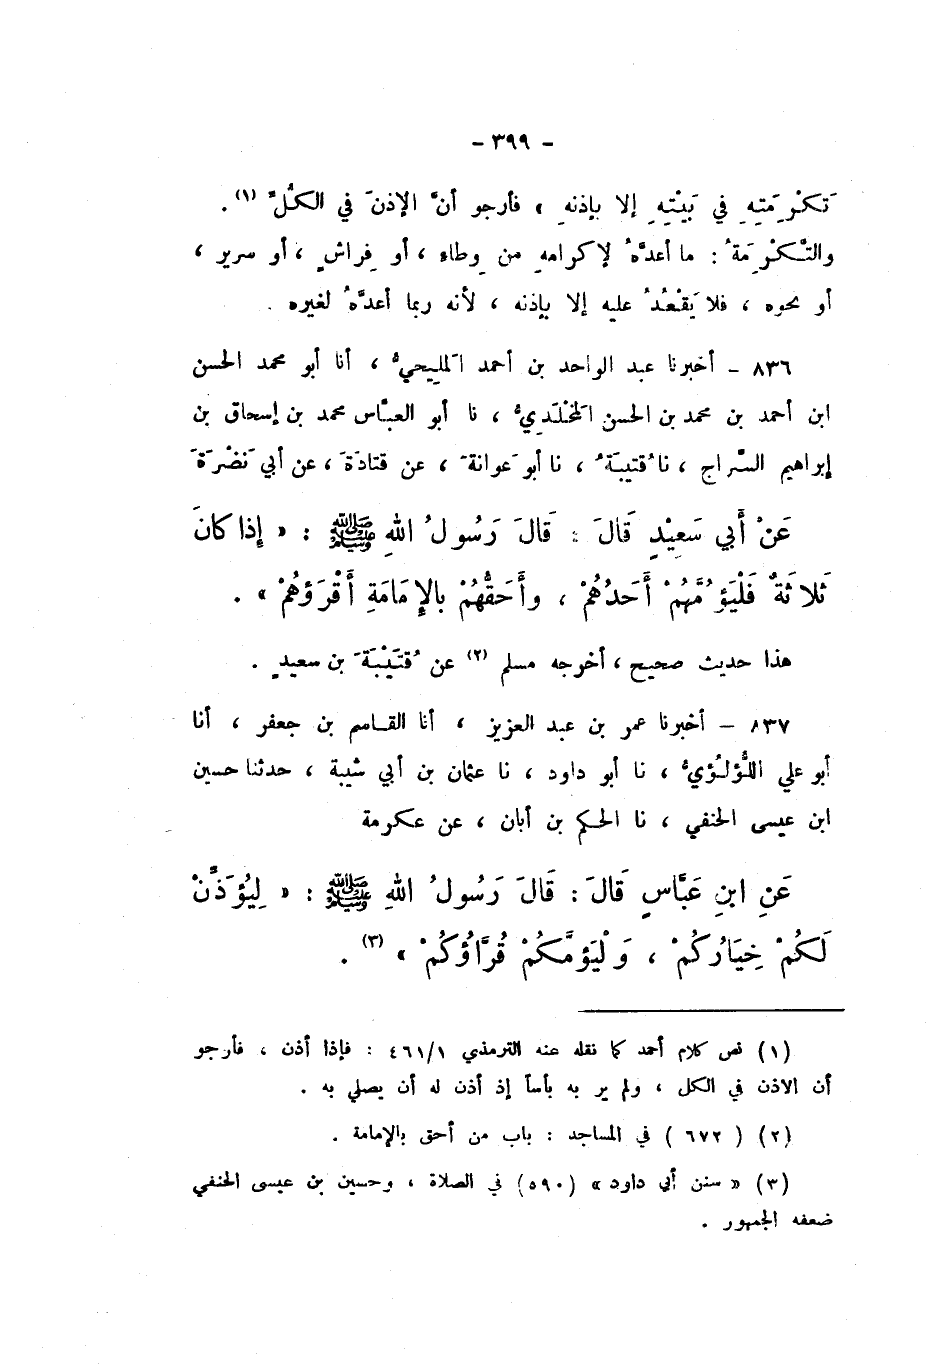 - ٣٩٩ -
تَكْرِمَتِهِ في بَيْتِهِ إلا بإذنهِ » فأرجو أنَّ الإذنَ في الكُلِّ (١) .
والتَّكْرِمَةُ : ما أعدَّهُ لإكرامهِ من وِطاءٍ ، أو فِراشٍ ، أو سرير ،
أو نحوه ، فلا يَقْعُدُ عليه إلا بإذنه ، لأنه ربما أعدَّهُ لغيره .
٨٣٦ - أخبرنا عبد الواحد بن أحمد المَلِيحيُّ ، أنا أبو محمد الحسن
ابن أحمد بن محمد بن الحسن المَخْلَدِيُّ ، نا أبو العبَّاس محمد بن إسحاق بن
إبراهيم السَّراج ، نا قُتيبَةُ ، نا أبو عَوانةَ ، عن قتادَةَ ، عن أبي نَضْرَةَ
عَنْ أَبي سَعِيْدٍ قَالَ : قَالَ رَسُولُ اللهِ ﷺ : « إِذا كانَ
ثَلاثَةٌ فَلْيَؤُمَّهُمْ أَحَدُهُمْ ، وأَحَقُّهُمْ بالإِمَامَةِ أَقْرَؤُهُمْ » .
هذا حديث صحيح ، أخرجه مسلم (٢) عن قُتَيْبَةَ بن سعيدٍ .
٨٣٧ - أخبرنا عمر بن عبد العزيز ، أنا القاسم بن جعفر ، أنا
أبو علي اللُّؤلُؤيُّ ، نا أبو داود ، نا عثمان بن أبي شيبة ، حدثنا حسين
ابن عيسى الحنفي ، نا الحكم بن أبان ، عن عكرمة
عَنِ ابنِ عَبَّاسٍ قَالَ : قَالَ رَسُولُ اللهِ ﷺ : « لِيُؤَذِّنْ
لَكُمْ خِيَارُكُمْ ، وَلْيَؤمَّكُمْ قُرَّاؤُكُمْ » (٣) .
(١) نص كلام أحمد كما نقله عنه الترمذي ٤٦١/١ : فإذا أذن ، فأرجو
أن الاذن في الكل ، ولم ير به بأساً إذ أذن له أن يصلي به .
(٢) ( ٦٧٢ ) في المساجد : باب من أحق بالإمامة .
(٣) « سنن أبي داود » (٥٩٠) في الصلاة ، وحسين بن عيسى الحنفي
ضعفه الجمهور .